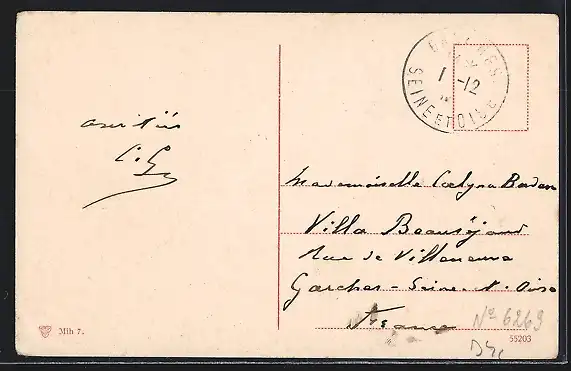 GARCHES
1 -12
SEINE ET OISE
amitiés
C. G.
Mademoiselle Bordan
Villa Beauséjour
Rue de Villeneuve
Garches - Seine. et. Oise
France
No 6269
Mlh 7.
55203